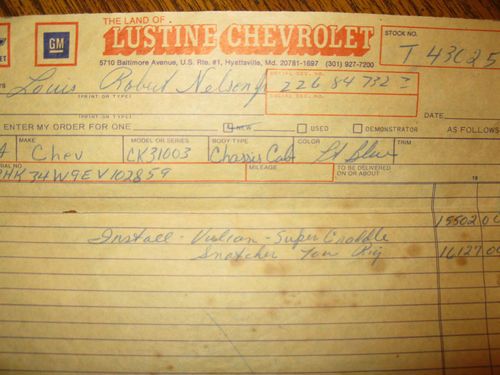 THE LAND OF
GM
LUSTINE CHEVROLET
5710 Baltimore Avenue, U.S. Rte. #1, Hyattsville, Md. 20781-1697 (301) 927-7200
STOCK NO.
T 43C25
Louis Robert Nelson Jr
(PRINT OR TYPE)
SOCIAL SEC. NO.
226 84 7323
SOCIAL SEC. NO.
(PRINT OR TYPE)
DATE
ENTER MY ORDER FOR ONE NEW USED DEMONSTRATOR AS FOLLOWS
MAKE MODEL OR SERIES BODY TYPE COLOR TRIM
Chev CK31003 Chassis Cab Lt Blue
SERIAL NO MILEAGE TO BE DELIVERED ON OR ABOUT 19
HK34W9EV102859
15502 00
Install - Vulcan - Super Craddle
Snatcher Tow Rig 16127 00